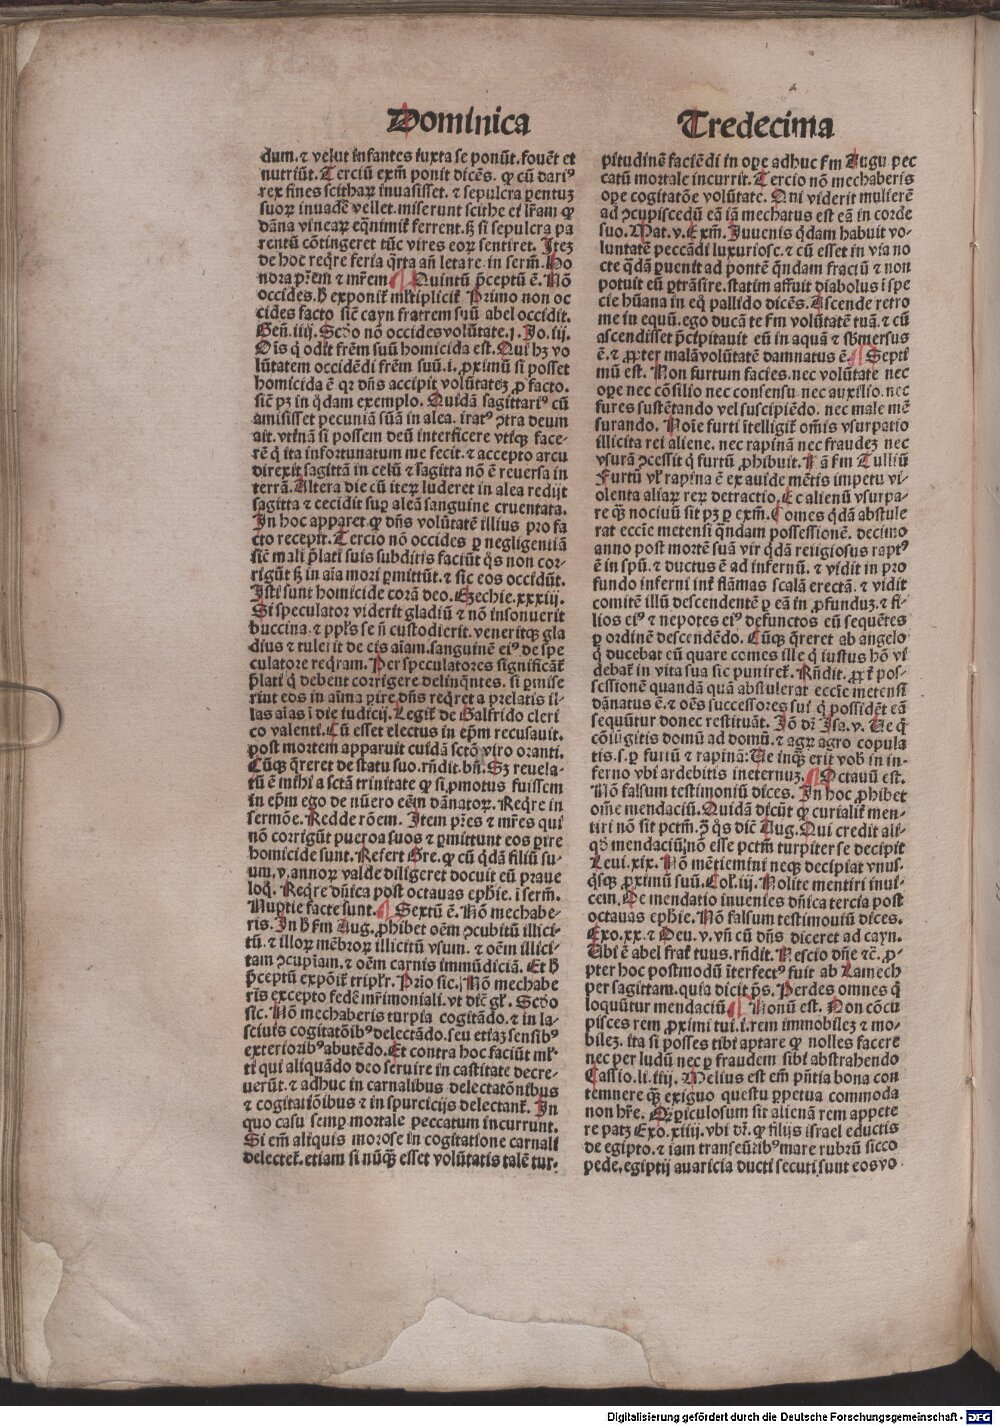 Dominica
dum.⁊ velut infantes iuxta se ponūt.fouēt et
nutriūt.Terciū exm̄ ponit dicēs. ꝙ cū dariꝰ
rex fines scithaꝝ inuasisset. ⁊ sepulcra pentuꝫ
suoꝝ inuadē vellet.miserunt scithe ei lr̄am ꝙ
dāna vineaꝝ eqͣnimit̉ ferrent.sꝫ si sepulcra pa
rentū cōtingeret tūc vires eoꝝ sentiret. Iteꝫ
de hoc reqͥre feria qͣrta an̄ letare.in serm̄.Ho
nora pr̄em ⁊ mr̄em ¶ Quintū p̄ceptū ē. Nō
occides.h̄ exponit̉ ml̓tiplicit̉. Primo non oc
cides facto sic̄ cayn fratrem suū abel occidit.
Gen̄.iiij. Scd̓o nō occides volūtate.1.Io.iij.
Oīs q̇ odit fr̄em suū homicida est.Qui hꝫ vo
lūtatem occidēdi fr̄em suū.i.ꝓximū si posset
homicida ē qꝛ dn̄s accipit volūtateꝫ ꝓ facto.
sic̄ pꝫ in q̇dam exemplo. Quidā sagittariꝰ cū
amisisset pecuniā suā in alea.iratꝰ ꝯtra deum
ait.vtinā si possem deū interficere vtiqꝫ face-
rē q̇ ita infortunatum me fecit.⁊ accepto arcu
direxit sagittā in celū ⁊ sagitta nō ē reuersa in
terrā.Altera die cū iteꝝ luderet in alea redijt
sagitta ⁊ cecidit suꝑ aleā sanguine cruentata.
In hoc apparet.ꝙ dn̄s volūtatē illius pro fa
cto recepit.Tercio nō occides ꝑ negligentiā
sic̄ mali p̄lati suis subditis faciūt q̇s non cor-
rigūt sꝫ in aīa mori ꝑmittūt.⁊ sic eos occidūt.
Isti sunt homicide corā deo.Ezechie.xxxiij.
Si speculator viderit gladiū ⁊ nō insonuerit
buccina.⁊ ppl̓s se n̄ custodierit.veneritqꝫ gla
dius ⁊ tulerit de eis aīam.sanguinē eiꝰ de spe
culatore reqͥram.Per speculatores significāt̉
p̄lati q̇ debent corrigere delinqͣntes.si ꝑmise
rint eos in aīma ꝑire dn̄s reqͥret a prelatis il-
las aīas ī die iudicij.Legit̉ de Galfrido cleri
co valenti.Cū esset electus in ep̄m recusauit.
post mortem apparuit cuidā sctō viro oranti.
Cūqꝫ q̄reret de statu suo.rn̄dit.bn̄.Sꝫ reuela-
tū ē mihi a sctā trinitate ꝙ si ꝓmotus fuissem
in ep̄m ego de nūero eēm dānatoꝝ.Reqͥre in
sermōe.Redde rōem. Item pr̄es ⁊ mr̄es qui
nō corrigūt pueros suos ⁊ ꝑmittunt eos ꝑire
homicide sunt.Refert Gre.ꝙ cū q̇dā filiū su-
um.v.annoꝝ valde diligeret docuit eū praue
loqͥ. Reqͥre dn̄ica post octauas eph̄ie.ī serm̄.
Nuptie facte sunt.¶ Sextū ē.Nō mechabe-
ris.In h̄ ẜm Aug.ꝓhibet oēm ꝯcubitū illici-
tū.⁊ illoꝝ mēbroꝝ illicitū vsum.⁊ oēm illici-
tam ꝯcupīam.⁊ oēm carnis immūdiciā. Et h̄
p̄ceptū expōit̉ tripl̓r. Prīo sic.Nō mechabe
ris excepto fedē mr̄imoniali.vt dic̄ gl̓. Scd̓o
sic. Nō mechaberis turpia cogitādo.⁊ in la-
sciuis cogitatōibꝰ delectādo.seu etiaꝫ sensibꝰ
exterioribꝰ abutēdo.Et contra hoc faciūt ml̓-
ti qui aliquādo deo seruire in castitate decre-
uerūt.⁊ adhuc in carnalibus delectatōnibus
⁊ cogitatiōibus ⁊ in spurcicijs delectant̉. In
quo casu semꝑ mortale peccatum incurrunt.
Si em̄ aliquis morose in cogitatione carnali
delectet̉.etiam si nūqͣꝫ esset volūtatis talē tur-
Tredecima
pitudinē faciēdi in oꝑe adhuc ẜm Augu pec
catū mortale incurrit.Tercio nō mechaberis
oꝑe cogitatōe volūtate. Qui viderit mulierē
ad ꝯcupiscēdū eā iā mechatus est eā in corde
suo.Mat.v.Exm̄. Iuuenis q̇dam habuit vo-
luntatē peccādi luxuriose.⁊ cū esset in via no
cte q̇dā ꝑuenit ad pontē qͣndam fractū ⁊ non
potuit eū ꝑtrāsire.statim affuit diabolus ī spe
cie hūana in eqͦ pallido dicēs.Ascende retro
me in equū.ego ducā te ẜm volūtatē tuā.⁊ cū
ascendisset p̄cipitauit eū in aquā ⁊ sb̓mersus
ē.⁊ ꝓpter malā volūtatē damnatus ē.¶ Septi
mū est. Non furtum facies.nec volūtate nec
oꝑe nec cōsilio nec consensu nec auxilio.nec
fures sustētando vel suscipiēdo. nec male mē
surando. Noīe furti ītelligit̉ om̄is vsurpatio
illicita rei aliene. nec rapinā nec fraudeꝫ nec
vsurā ꝯcessit q̇ furtū ꝓhibuit. Nā ẜm Tulliū
Furtū vl̓ rapina ē ex auide mētis impetu vi-
olenta aliaꝝ reꝝ detractio.Ec alienū vsurpa-
re qͣꝫ nociuū sit pꝫ ꝑ exm̄.Comes q̇dā abstule
rat eccīe metensi qͣndam possessionē. decimo
anno post mortē suā vir q̇dā religiosus raptꝰ
ē in spū.⁊ ductus ē ad infernū. ⁊ vidit in pro
fundo inferni int̉ flāmas scalā erectā.⁊ vidit
comitē illū descendentē ꝑ eā in ꝓfunduꝫ.⁊ fi-
lios eiꝰ ⁊ nepotes eiꝰ defunctos eū sequētes
ꝑ ordinē descendēdo. Cūqꝫ q̄reret ab angelo
q̇ ducebat eū quare comes ille q̇ iustus hō vi
debat̉ in vita sua sic puniret̉. Rn̄dit. ꝓpt̉ pos-
sessionē quandā quā abstulerat eccīe metensī
dānatus ē.⁊ oēs successores sui q̇ possidēt eā
sequūtur donec restituāt. Iō dꝛ̄ Isa.v. Ue q̇
cōiūgitis domū ad domū.⁊ agꝝ agro copula
tis.s.ꝑ furtū ⁊ rapinā.Ue inqͣꝫ erit vob̓ in in-
ferno vbi ardebitis ineternuꝫ.¶ Octauū est.
Nō falsum testimoniū dices. In hoc ꝓhibet
om̄e mendaciū.Quidā dicūt ꝙ curialit̉ men-
tiri nō sit pctm̄.Ꝯ q̇s dic̄ Aug.Qui credit ali-
qd̓ mendaciū nō esse pctm̄ turpiter se decipit
Leui.xix. Nō mētiemini neqꝫ decipiat vnus-
q̇sqꝫ ꝓximū suū.Col̓.iij. Nolite mentiri inui-
cem.De mendatio inuenies dn̄ica tercia post
octauas eph̄ie. Nō falsum testimoniū dices.
Exo.xx.⁊ Deu.v.vn̄ cū dn̄s diceret ad cayn.
Ubi ē abel frat̉ tuus.rn̄dit. Nescio dn̄e ⁊c̄.ꝓ-
pter hoc postmodū īterfectꝰ fuit ab Lamech
per sagittam.quia dicit ps̄. Perdes omnes q̇
loquūtur mendaciū.¶ Nonū est. Non cōcu
pisces rem ꝓximi tui.i.rem immobileꝫ ⁊ mo-
bileꝫ. ita si posses tibi aptare ꝙ nolles facere
nec per ludū nec ꝑ fraudem sibi abstrahendo
Cassio.li.iiij. Melius est em̄ pn̄tia bona con
temnere qͣꝫ exiguo questu ꝑpetua commoda
non hr̄e. Qꝙ ꝑiculosum sit alienā rem appete
re patꝫ Exo.xiiij.vbi dꝛ̄.ꝙ filijs israel eductis
de egipto.⁊ iam transeūtibꝰ mare rubrū sicco
pede.egiptij auaricia ducti secuti sunt eos vo
Digitalisierung gefördert durch die Deutsche Forschungsgemeinschaft - DFG